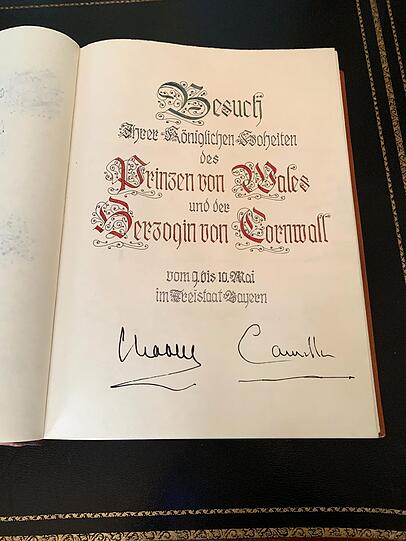 Besuch
Ihrer Königlichen Hoheiten
des
Prinzen von Wales
und der
Herzogin von Cornwall
vom 9. bis 10. Mai
im Freistaat Bayern
Charles
Camilla